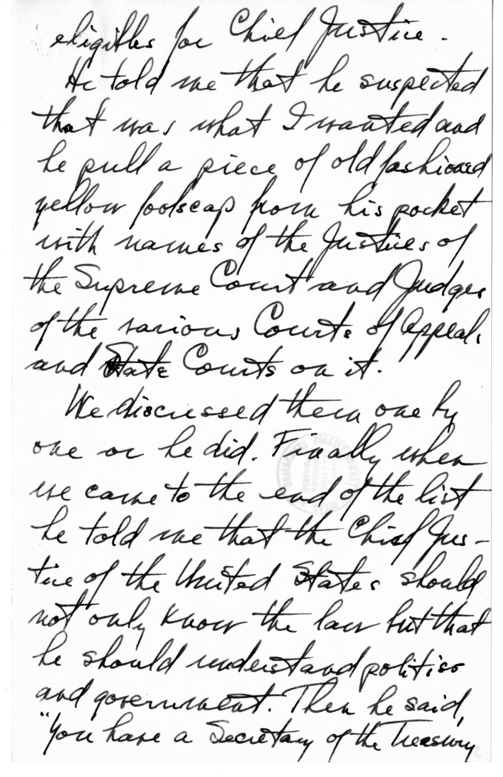 eligibles for Chief Justice.
He told me that he suspected
that was what I wanted and
he pull a piece of old fashioned
yellow foolscap from his pocket
with names of the Justices of
the Supreme Court and Judges
of the various Courts of Appeals
and State Courts on it.
We discussed them one by
one or he did. Finally when
we came to the end of the list
he told me that the Chief Jus-
tice of the United States should
not only know the law but that
he should understand politics
and government. Then he said,
"You have a Secretary of the Treasury